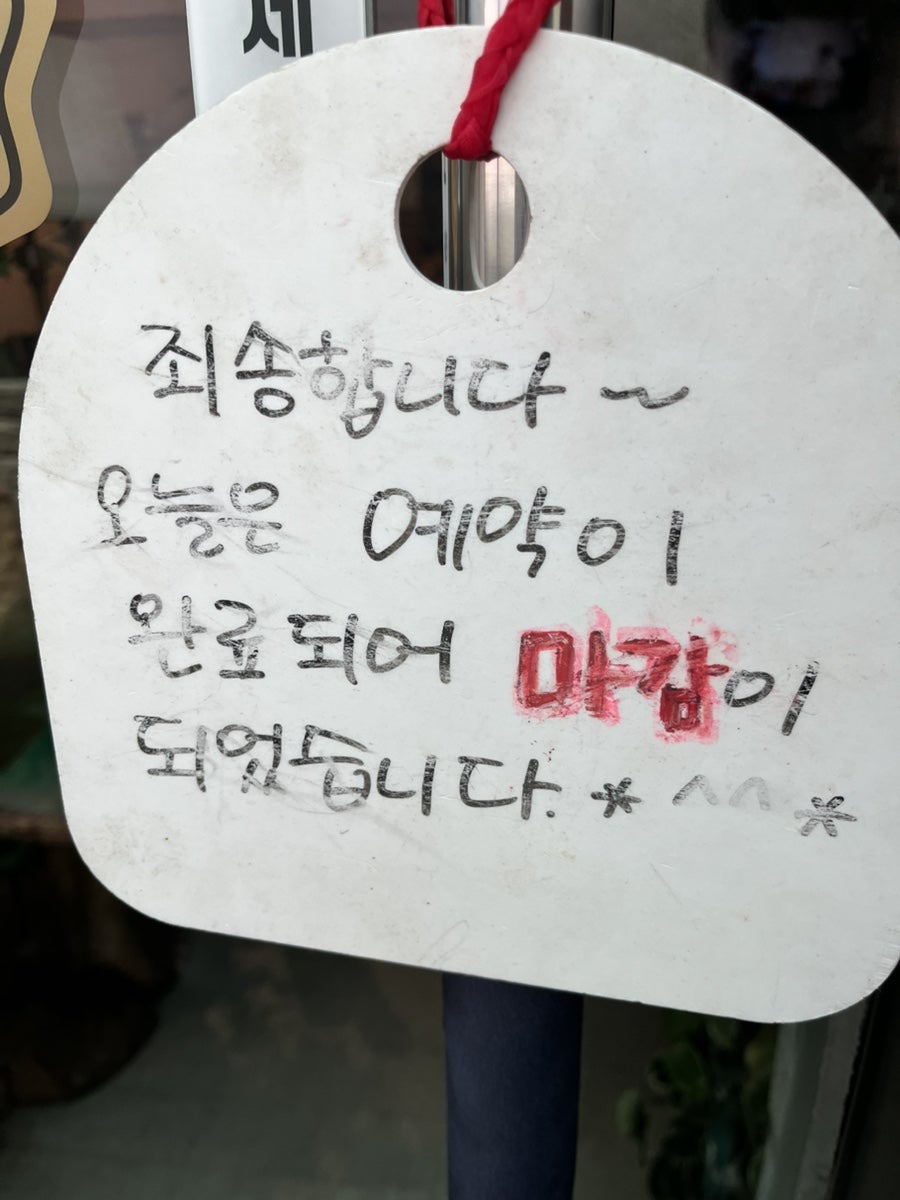 세
죄송합니다~
오늘은 예약이
완료되어 마감이
되었습니다. * ^^ *